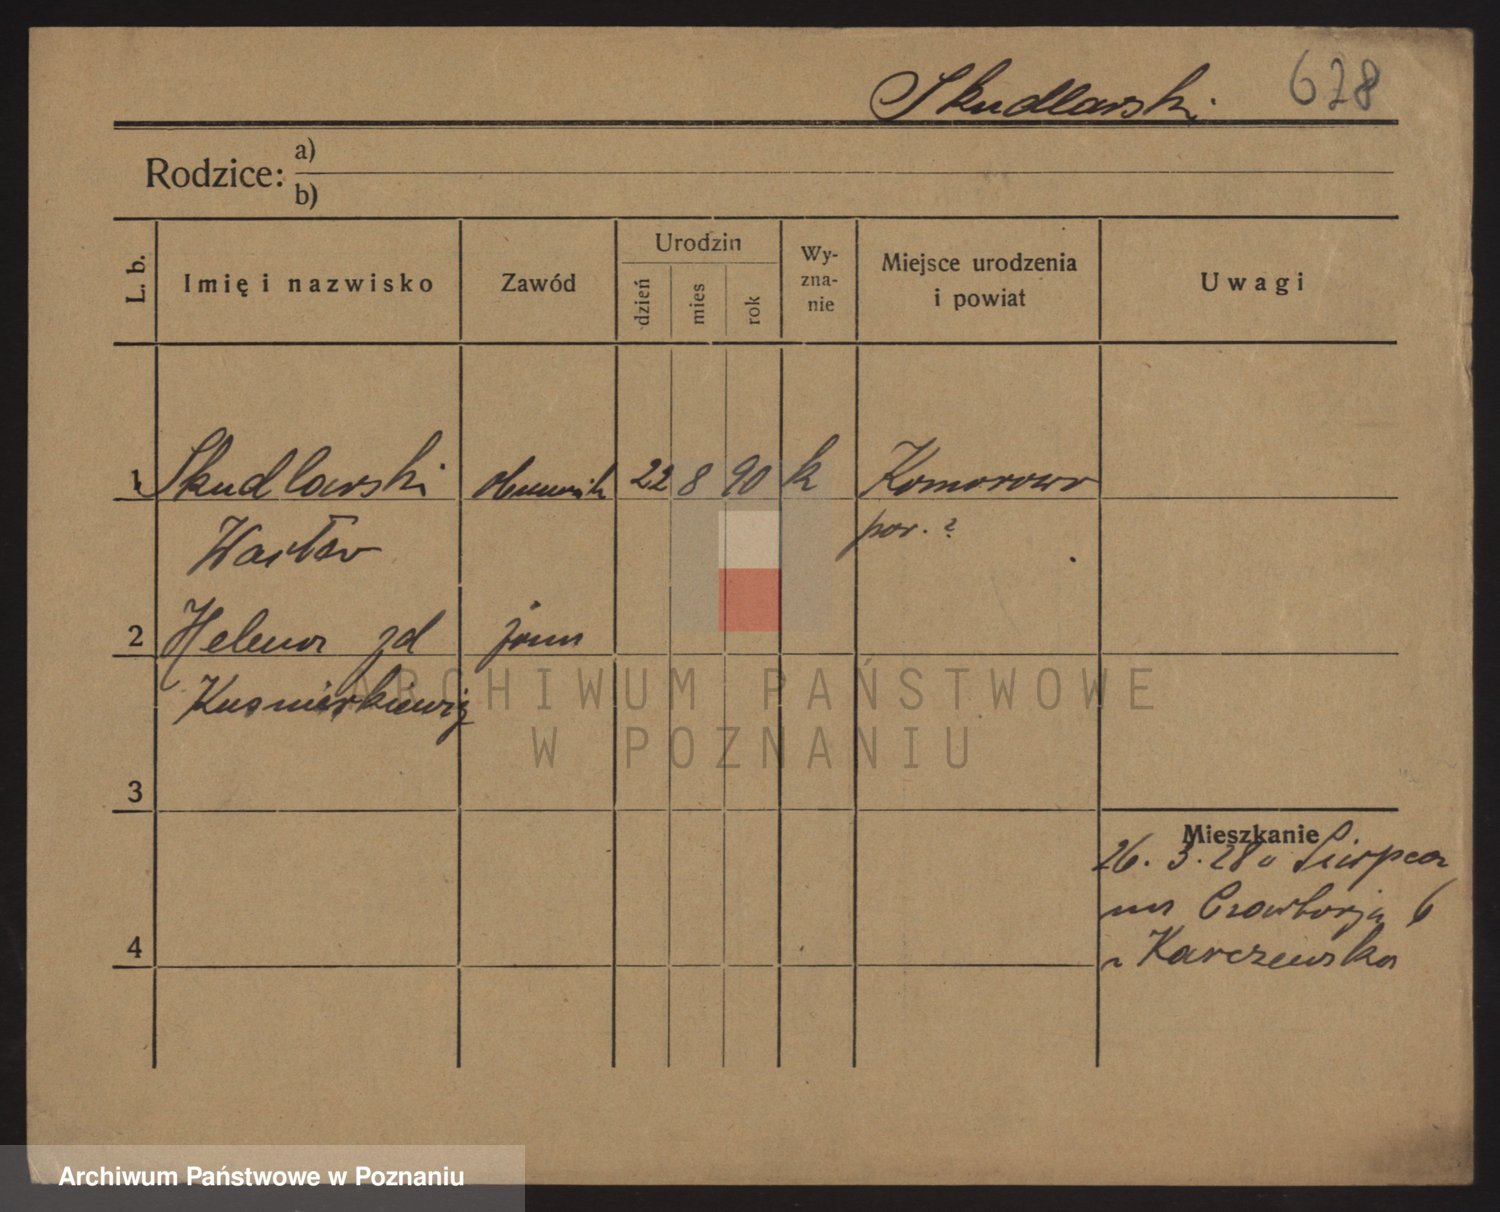 Skudlarski 628
Rodzice: a)
b)
L. b. Imię i nazwisko Zawód Urodzin dzień mies rok Wy-zna-nie Miejsce urodzenia i powiat Uwagi
1 Skudlarski 22 8 90 k Komorowo
Wacław pow. ?
2 Helena zd żona
Kusnierkiewicz
ARCHIWUM PAŃSTWOWE
W POZNANIU
3
Mieszkanie
26. 3. 28
na 6
4 Karczewska
Archiwum Państwowe w Poznaniu